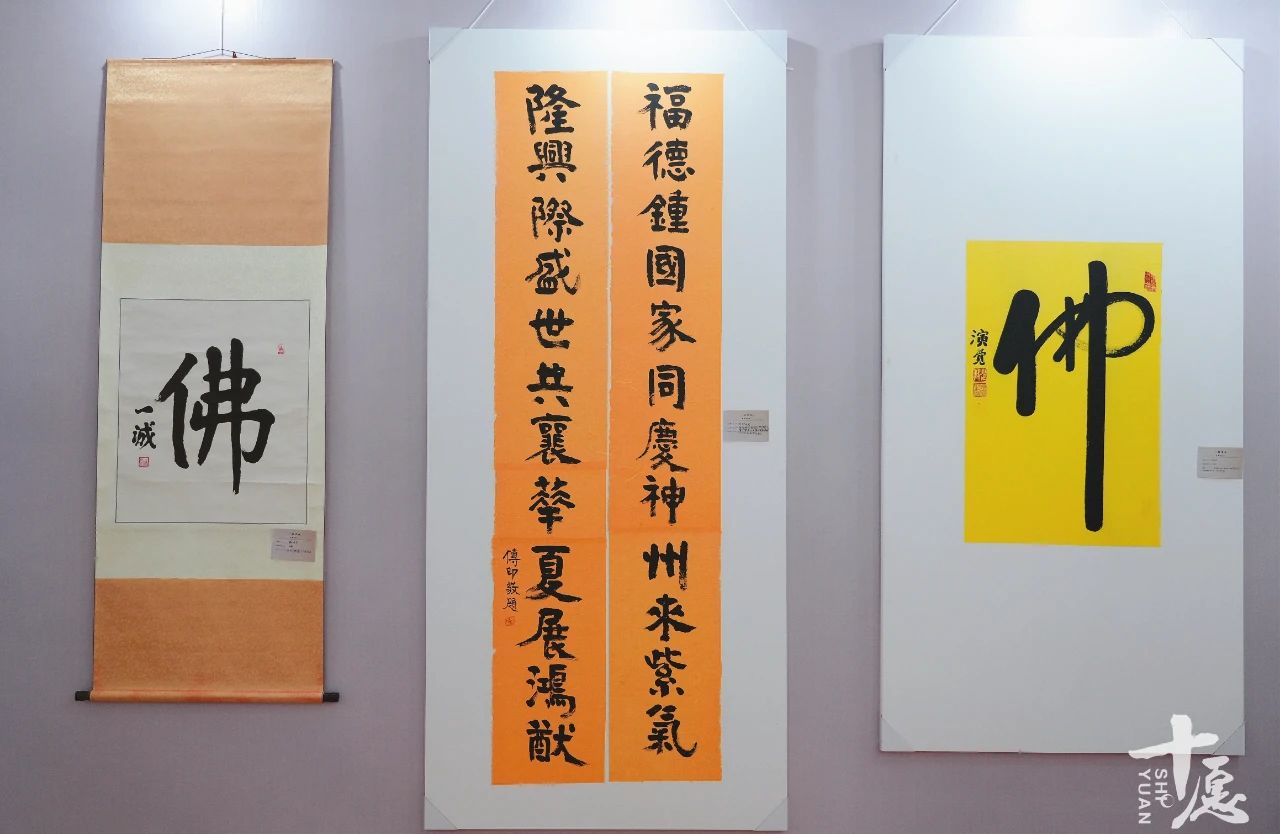 佛
一誠
福德鍾國家同慶神州來紫氣
隆興際盛世共襄華夏展鴻猷
傳印敬題
佛
演覺
十愿
SHI YUAN